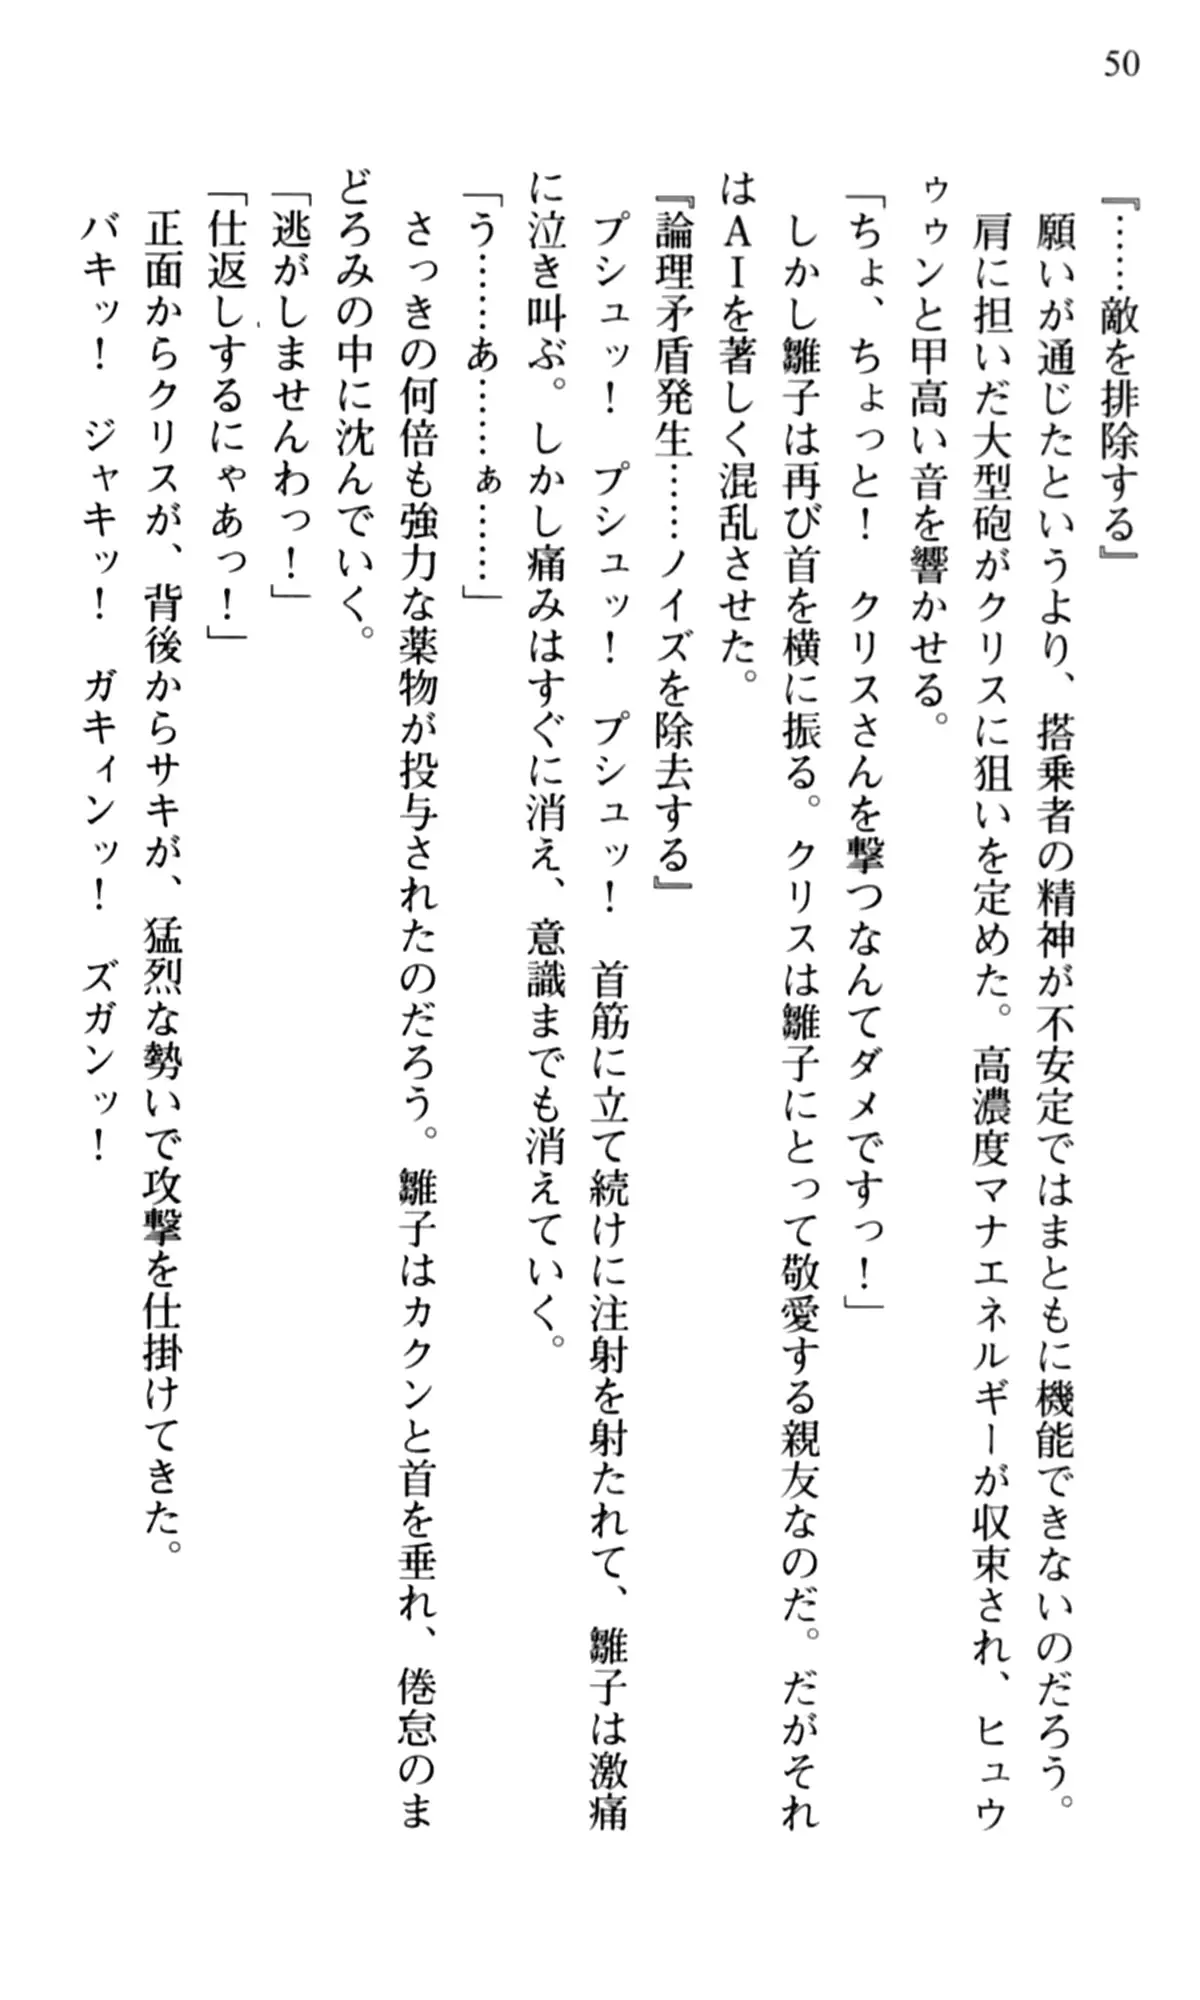 50
『……敵を排除する』
願いが通じたというより、搭乗者の精神が不安定ではまともに機能できないのだろう。
肩に担いだ大型砲がクリスに狙いを定めた。高濃度マナエネルギーが収束され、ヒュウ
ゥゥンと甲高い音を響かせる。
「ちょ、ちょっと！　クリスさんを撃つなんてダメですっ！」
しかし雛子は再び首を横に振る。クリスは雛子にとって敬愛する親友なのだ。だがそれ
はＡＩを著しく混乱させた。
『論理矛盾発生……ノイズを除去する』
プシュッ！　プシュッ！　プシュッ！　首筋に立て続けに注射を射たれて、雛子は激痛
に泣き叫ぶ。しかし痛みはすぐに消え、意識までも消えていく。
「う……あ……ぁ……」
さっきの何倍も強力な薬物が投与されたのだろう。雛子はカクンと首を垂れ、倦怠のま
どろみの中に沈んでいく。
「逃がしませんわっ！」
「仕返しするにゃあっ！」
正面からクリスが、背後からサキが、猛烈な勢いで攻撃を仕掛けてきた。
バキッ！　ジャキッ！　ガキィンッ！　ズガンッ！